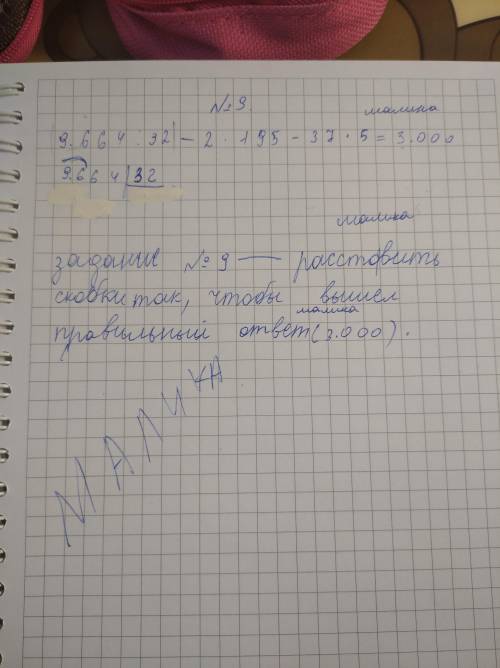 № 9
малика
9.664 : 32 - 2 · 195 - 37 · 5 = 3.000
9.664 32
малика
задание № 9 — расстовить
скобки так, чтобы вышел
малика
правильный ответ (3.000).
МАЛИКА